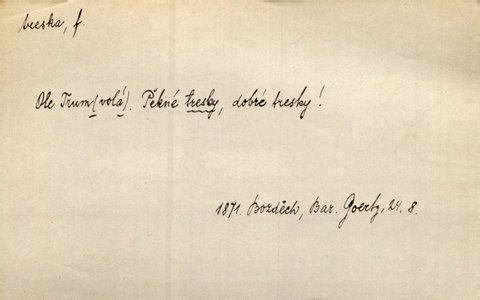 treska, f.
Ole Trum (volá). Pěkné tresky, dobré tresky!
1871. Bozděch, Bar. Goertz, 24. 8.